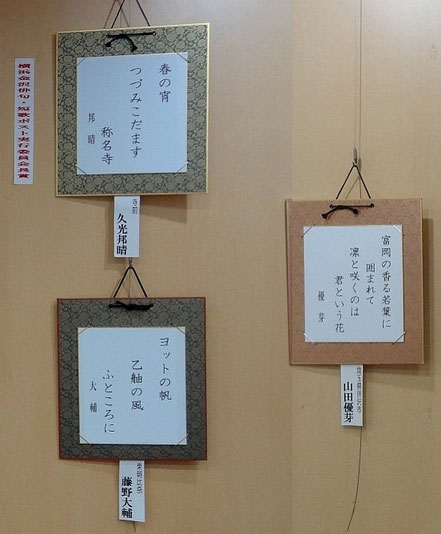 横浜金沢俳句・短歌ポスト実行委員会長賞
春の宵
つづみこだます
称名寺
邦晴
寺前
久光邦晴
ヨットの帆
乙舳の風
ふところに
大輔
東朝比奈
藤野大輔
富岡の香る若葉に
囲まれて
凛と咲くのは
君という花
優芽
山田優芽